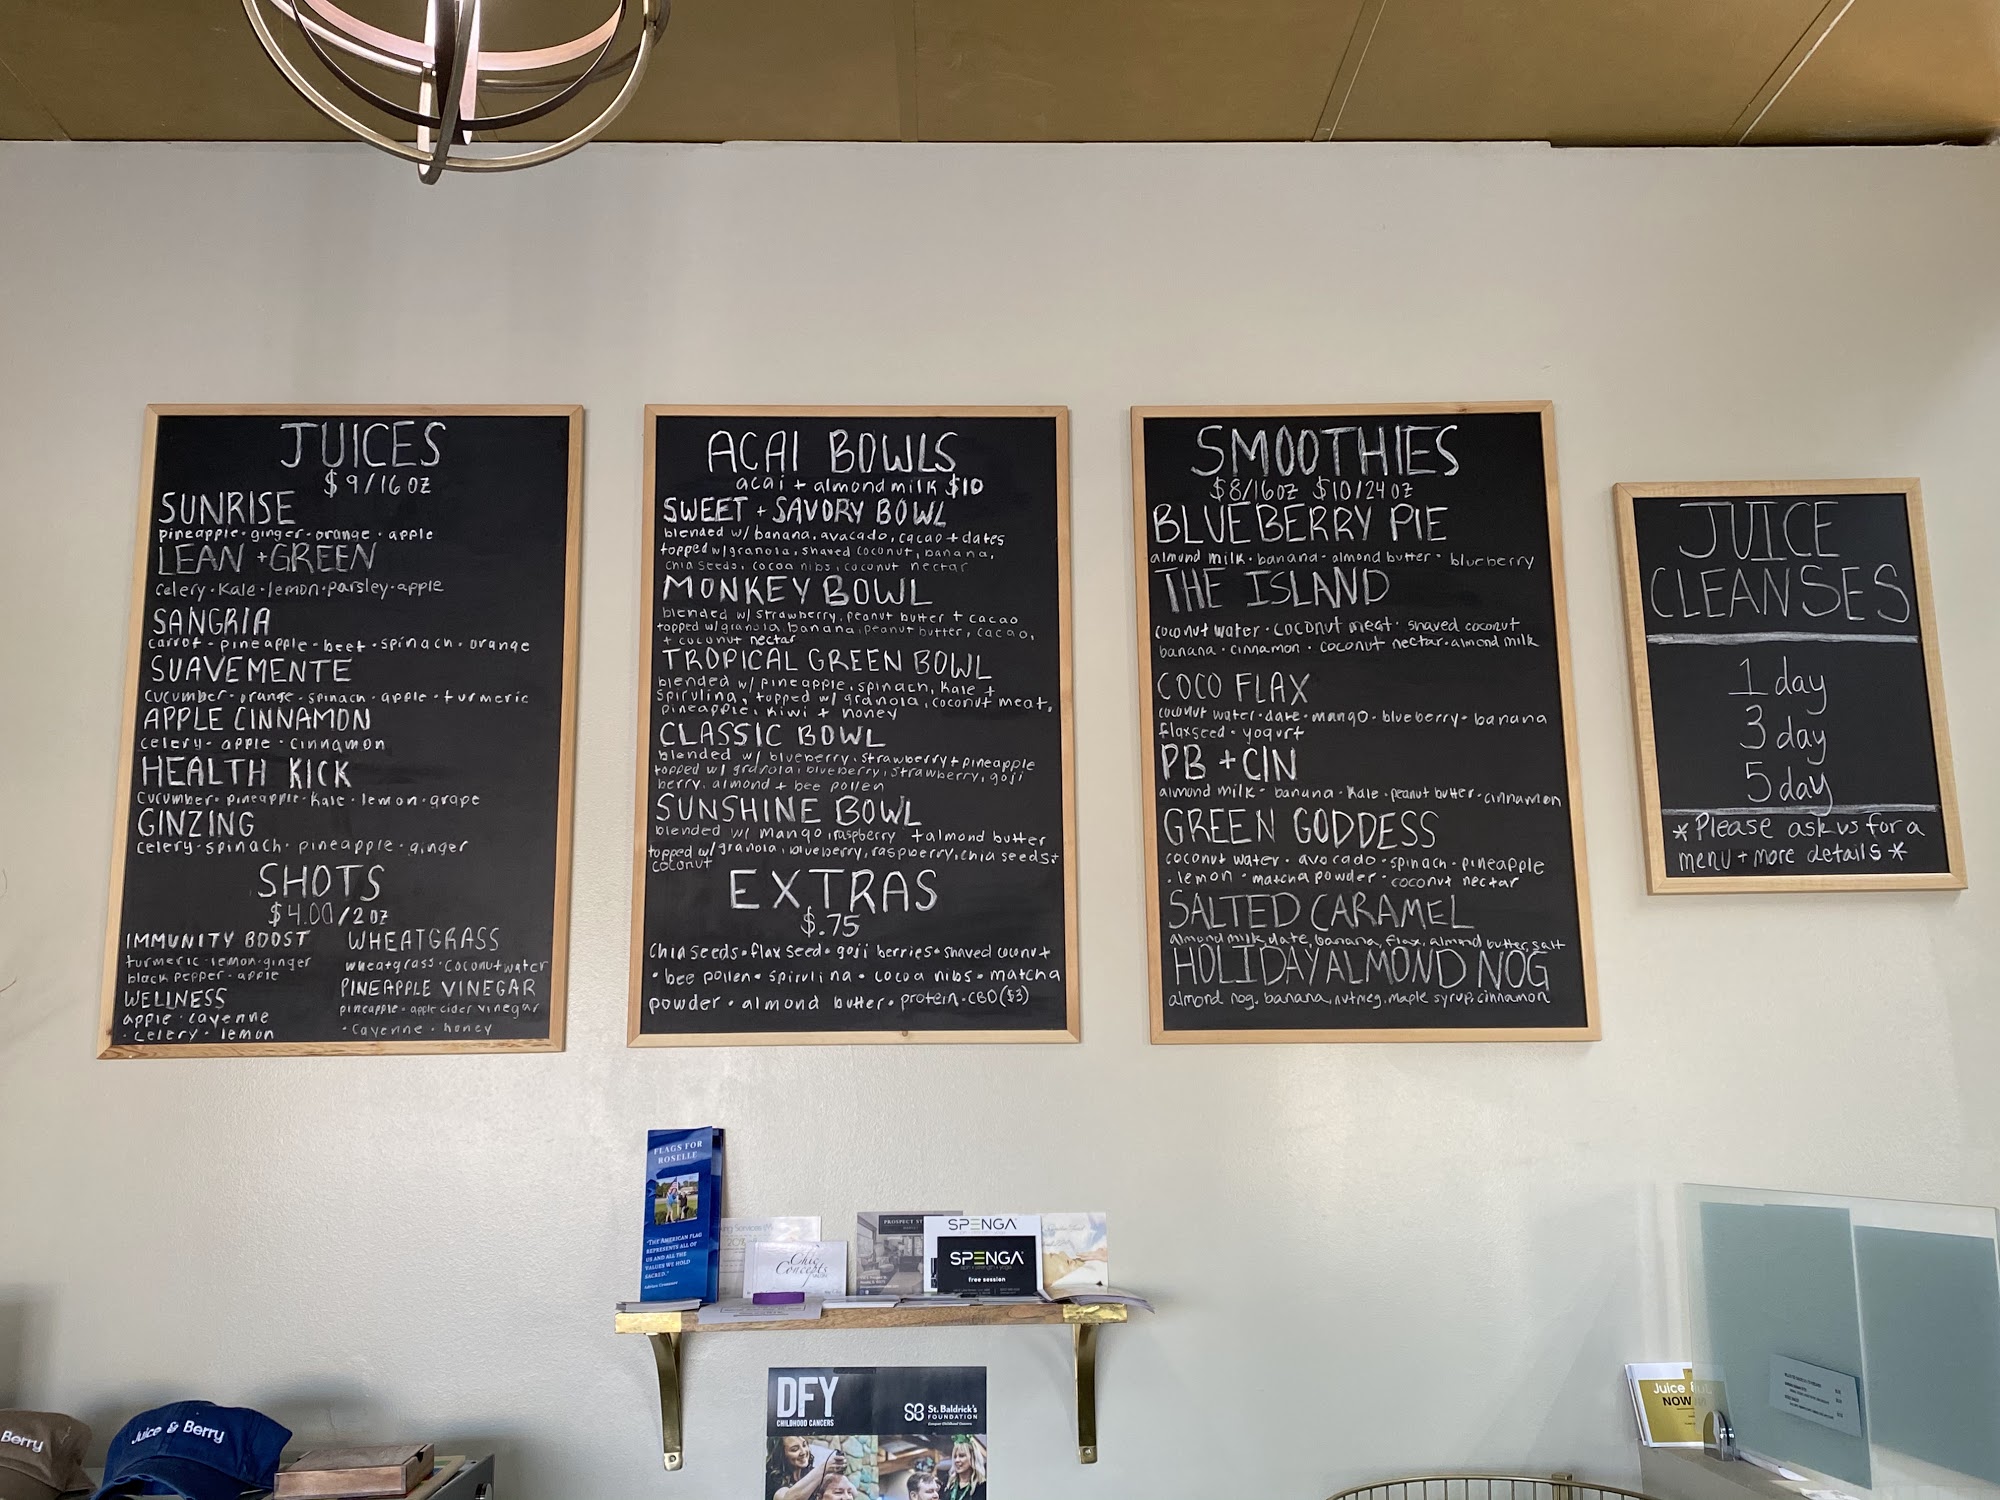 JUICES
$9/16 OZ
SUNRISE
pineapple · ginger · orange · apple
LEAN + GREEN
celery · Kale · lemon · parsley · apple
SANGRIA
carrot - pineapple - beet - spinach · orange
SUAVEMENTE
cucumber · orange · spinach · apple · turmeric
APPLE CINNAMON
celery · apple · cinnamon
HEALTH KICK
cucumber · pineapple · Kale · lemon · grape
GINZING
celery · spinach · pineapple · ginger
SHOTS
$4.00/2 OZ
IMMUNITY BOOST
turmeric · lemon · ginger
black pepper · apple
WELLNESS
apple · cayenne
· celery · lemon
WHEATGRASS
wheatgrass · coconut water
PINEAPPLE VINEGAR
pineapple · apple cider vinegar
· cayenne · honey
ACAI BOWLS
acai + almond milk $10
SWEET + SAVORY BOWL
blended w/ banana, avacado, cacao + dates
topped w/ granola, shaved coconut, banana,
chia seeds, cocoa nibs, coconut nectar
MONKEY BOWL
blended w/ strawberry, peanut butter + cacao
topped w/ granola, banana, peanut butter, cacao,
+ coconut nectar
TROPICAL GREEN BOWL
blended w/ pineapple, spinach, kale +
spirulina, topped w/ granola, coconut meat,
pineapple, kiwi + honey
CLASSIC BOWL
blended w/ blueberry, strawberry + pineapple
topped w/ granola, blueberry, strawberry, goji
berry, almond + bee pollen
SUNSHINE BOWL
blended w/ mango, raspberry + almond butter
topped w/ granola, blueberry, raspberry, chia seeds +
coconut
EXTRAS
$.75
chia seeds · flax seed · goji berries · shaved coconut
· bee pollen · spirulina · cocoa nibs · matcha
powder · almond butter · protein · CBD ($3)
SMOOTHIES
$8/16oz $10/24oz
BLUEBERRY PIE
almond milk · banana · almond butter · blueberry
THE ISLAND
coconut water · coconut meat · shaved coconut
banana · cinnamon · coconut nectar · almond milk
COCO FLAX
coconut water · date · mango · blueberry · banana
flaxseed · yogurt
PB + CIN
almond milk · banana · Kale · peanut butter · cinnamon
GREEN GODDESS
coconut water · avocado · spinach · pineapple
· lemon · matcha powder · coconut nectar
SALTED CARAMEL
almond milk, date, banana, flax, almond butter, salt
HOLIDAY ALMOND NOG
almond nog, banana, nutmeg, maple syrup, cinnamon
JUICE
CLEANSES
1 day
3 day
5 day
* Please ask us for a
menu + more details *
FLAGS FOR
ROSELLE
"THE AMERICAN FLAG
REPRESENTS ALL OF
US AND ALL THE
VALUES WE HOLD
SACRED."
Chic
Concepts
SALON
PROSPECT ST
SPENGA
SPENGA
free session
DFY
CHILDHOOD CANCERS
St. Baldrick's
FOUNDATION
Berry
Juice & Berry
Juice
NOW